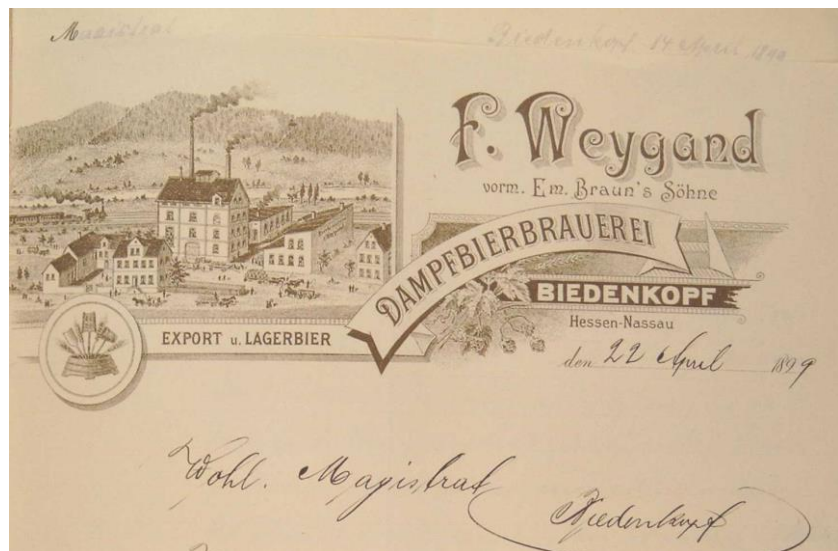 Magistrat
Biedenkopf. 14 April 1899
F. Weygand
vorm. Em. Braun's Söhne
DAMPFBIERBRAUEREI
BIEDENKOPF
Hessen-Nassau
EXPORT u. LAGERBIER
den 22 April 1899
Wohl. Magistrat
Biedenkopf